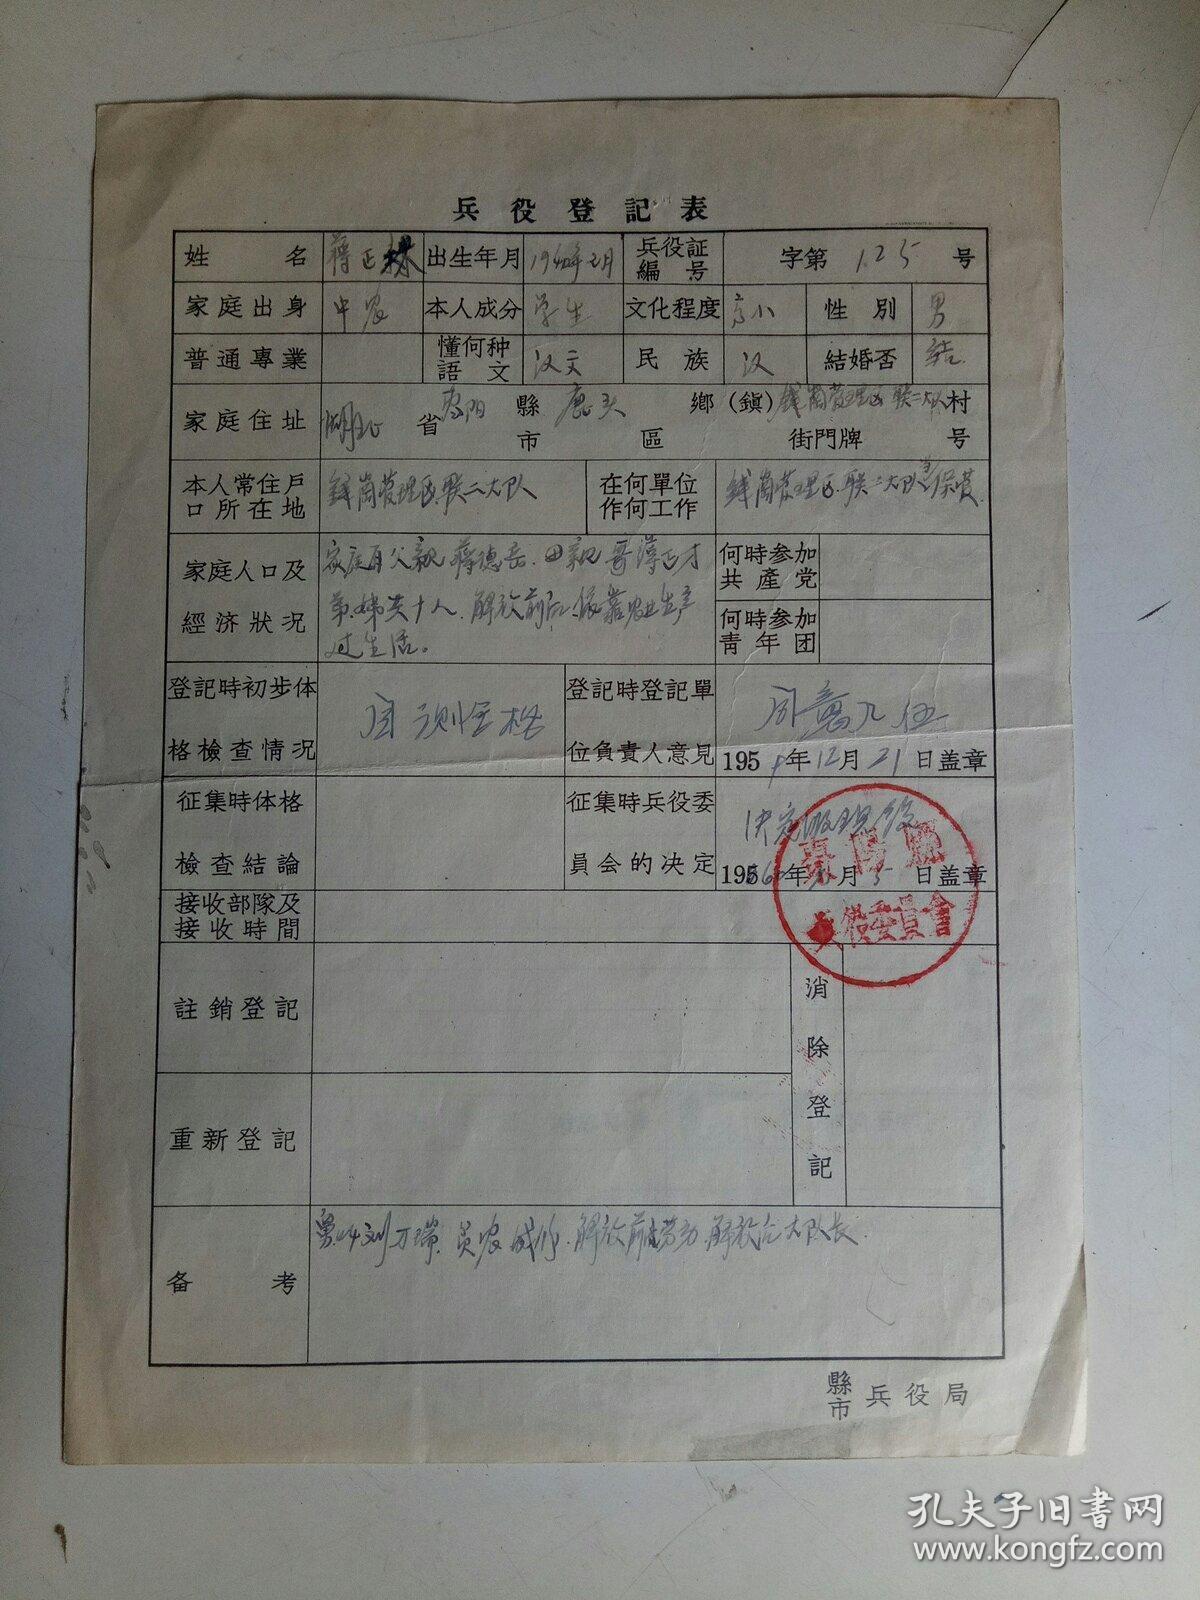 兵役登記表
姓名 蒋正林 出生年月 兵役証編号 字第125号
家庭出身 中农 本人成分 学生 文化程度 高小 性別 男
普通專業 懂何种語文 汉文 民族 汉 結婚否 結
家庭住址 湖北省 枣阳縣市 鹿头區 鄉(鎮) 钱岗管理区联二大队村 街門牌号
本人常住戶口所在地 钱岗管理区联二大队 在何單位作何工作 钱岗管理区联二大队
家庭人口及經济狀况 家庭有父親蒋德 母親 哥蒋正才
弟.妹共十人.解放前后依靠农业生产
过生活。
何時参加共產党
何時参加青年团
登記時初步体格檢查情况 目测合格 登記時登記單位負責人意見 同意入伍
1959年12月21日盖章
征集時体格檢查結論 征集時兵役委員会的决定 决定服现役
19560年 月5日盖章
棗陽縣
兵役委員會
接收部隊及接收時間
註銷登記 消除登記
重新登記
备考 舅父刘万瑞.贫农成份.解放前劳动.解放后大队长.
縣市兵役局
孔夫子旧書网
www.kongfz.com